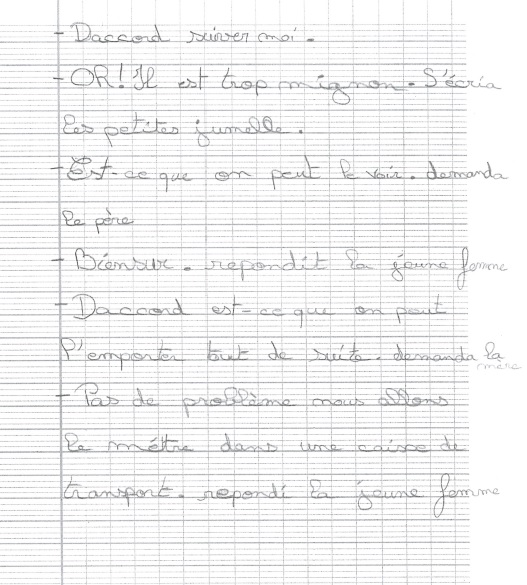 - Daccord suiver moi.
- OR! Il est trop mignon. S'écria
les petites jumelle.
- Est-ce que on peut le voir. demanda
le père
- Biensur. repondit la jeune femme
- Daccord est-ce que on peut
l'emporter tout de suite. demanda la
mère
- Pas de problème nous allons
le méttre dans une caisse de
transport. repondi la jeune femme